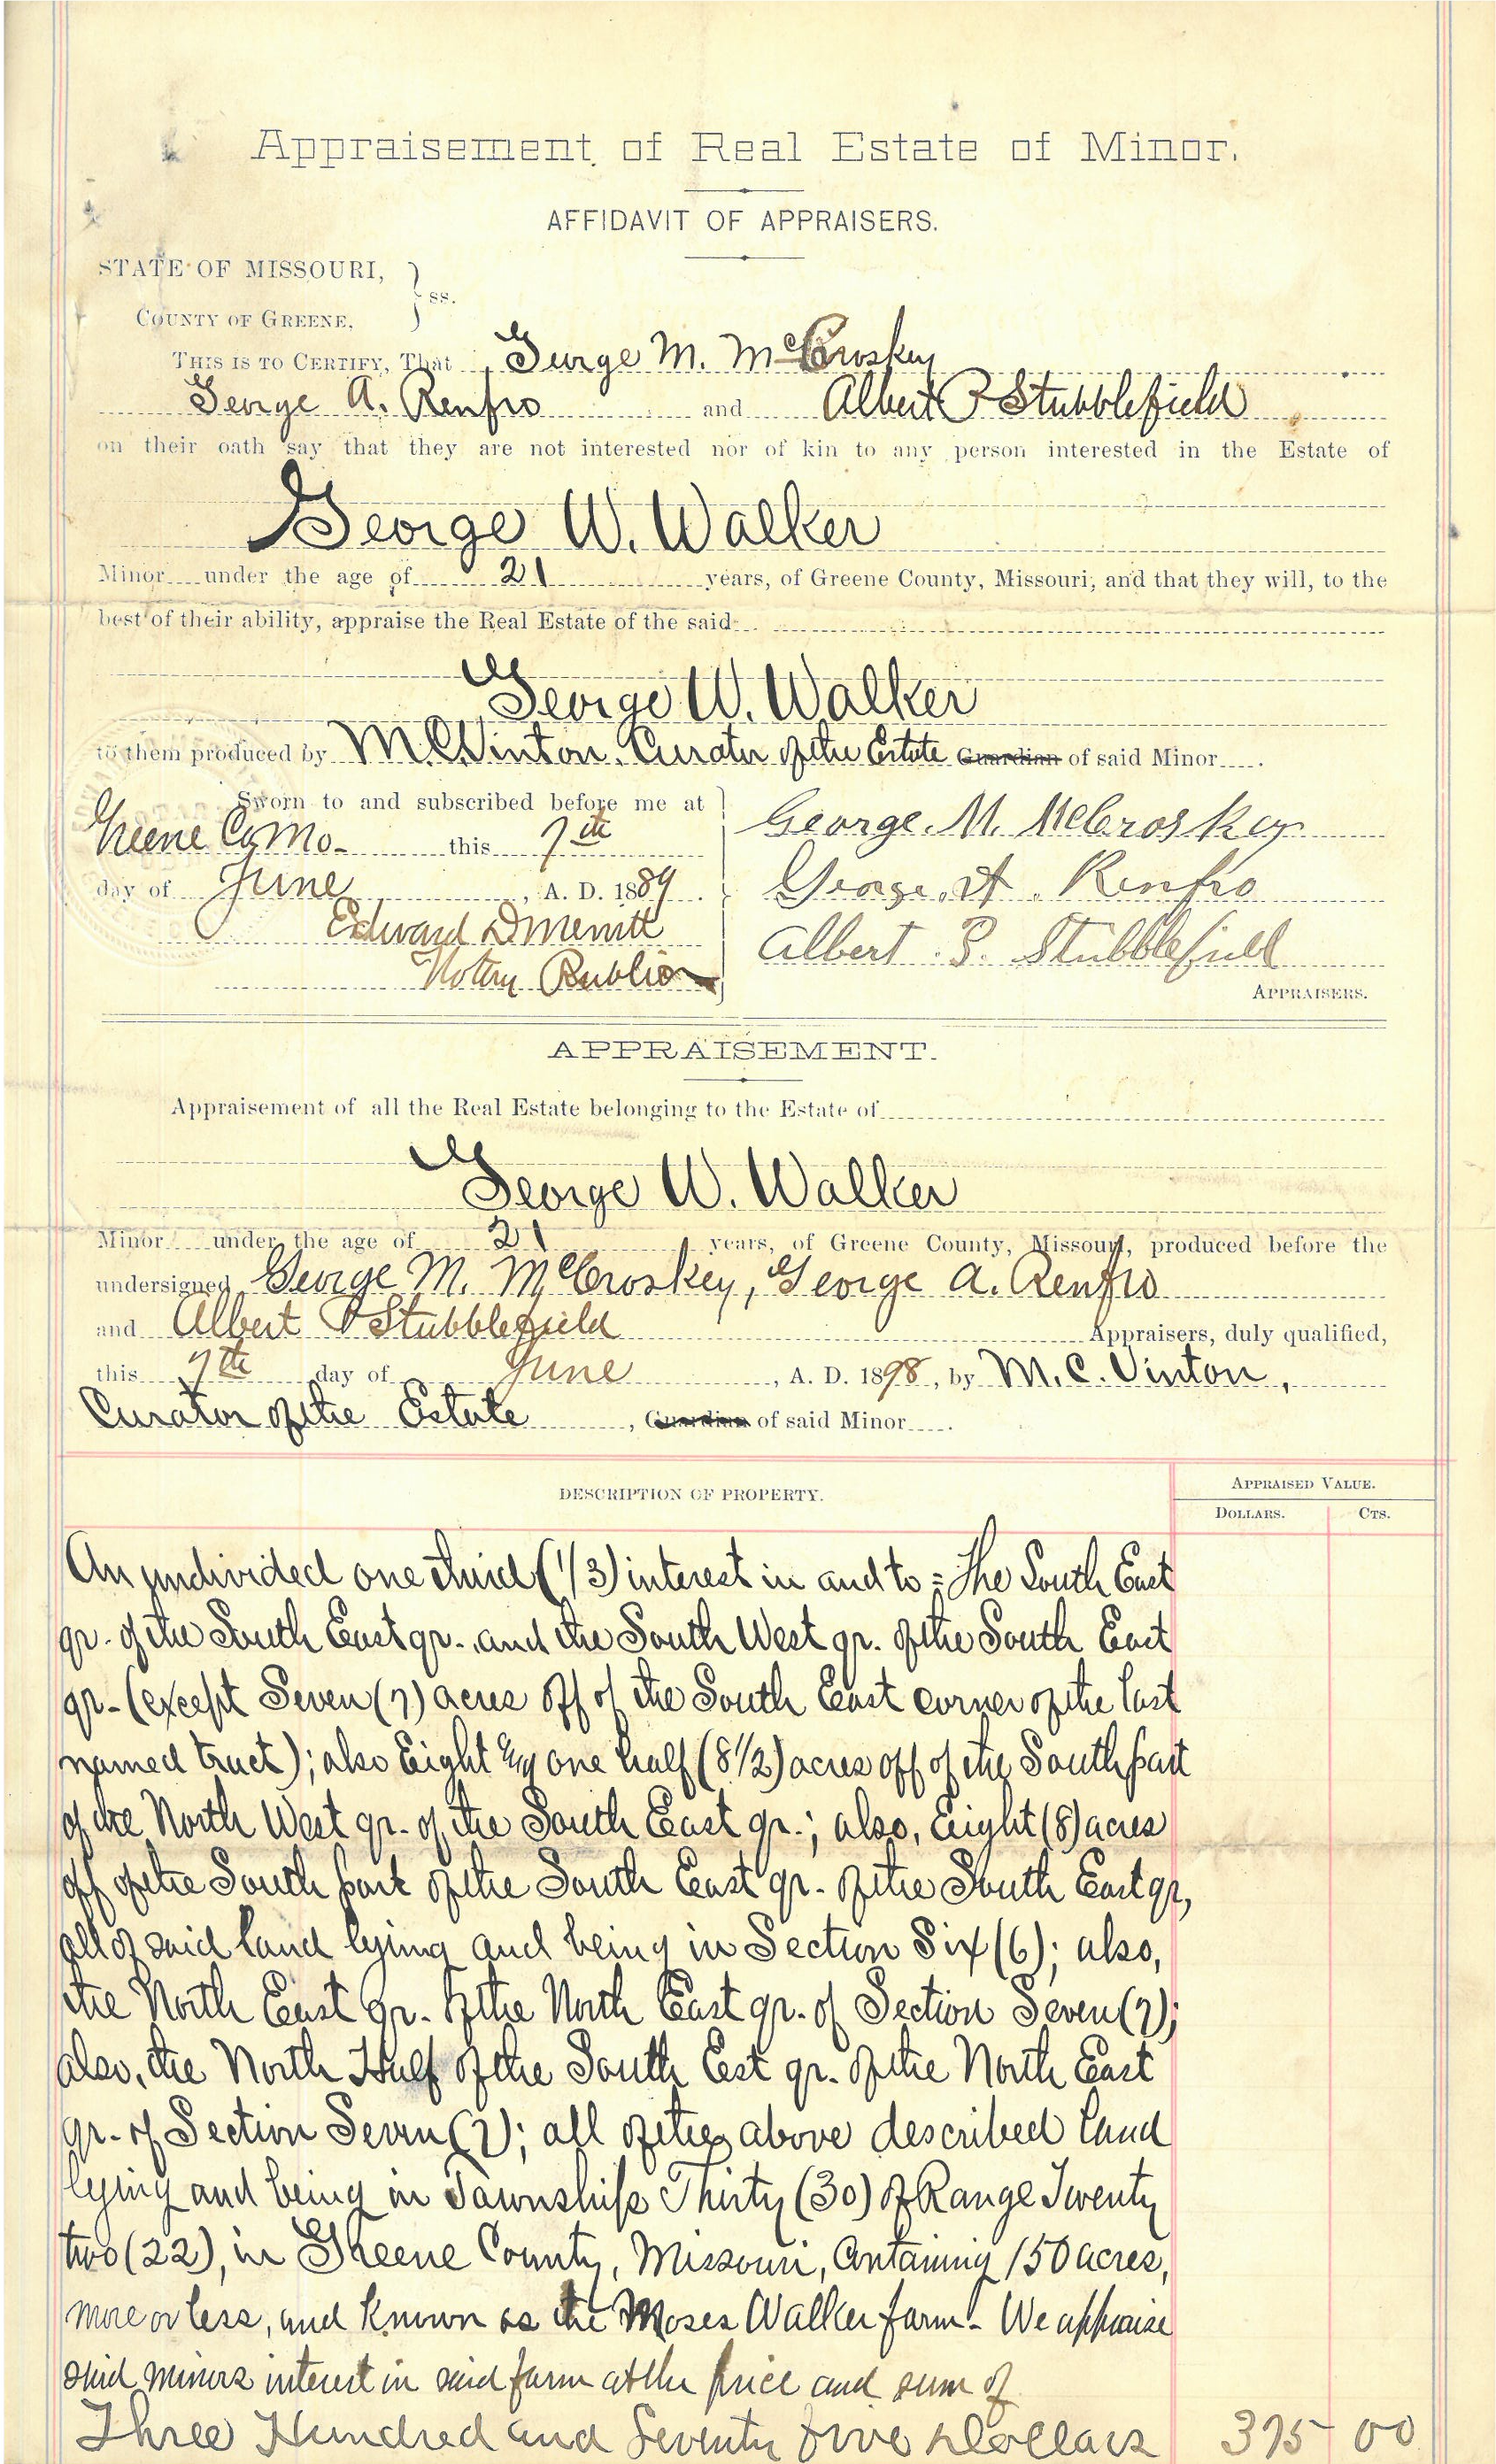 Appraisement of Real Estate of Minor.
AFFIDAVIT OF APPRAISERS.
STATE OF MISSOURI,
COUNTY OF GREENE.
} ss.
THIS IS TO CERTIFY, That George M. McCroskey
George A. Renfro and Albert P Stubblefield
on their oath say that they are not interested nor of kin to any person interested in the Estate of
George W. Walker
Minor under the age of 21 years, of Greene County, Missouri, and that they will, to the
best of their ability, appraise the Real Estate of the said
George W. Walker
to them produced by M.C. Vinton, Curator of the Estate Guardian of said Minor.
Sworn to and subscribed before me at
Greene Co, Mo. this 7th
day of June, A. D. 1889.
Edward D. Merritt
Notary Public
George. M. McCroskey
George. A. Renfro
Albert P. Stubblefield
APPRAISERS.
APPRAISEMENT.
Appraisement of all the Real Estate belonging to the Estate of
George W. Walker
Minor under the age of 21 years, of Greene County, Missouri, produced before the
undersigned George M. McCroskey, George A. Renfro
and Albert P Stubblefield Appraisers, duly qualified,
this 7th day of June, A. D. 1898, by M. C. Vinton,
Curator of the Estate, Guardian of said Minor.
DESCRIPTION OF PROPERTY.
APPRAISED VALUE.
DOLLARS. CTS.
An undivided one third (1/3) interest in and to = The South East
qr. of the South East qr. and the South West qr. of the South East
qr. (except Seven (7) acres off of the South East corner of the last
named tract); also Eight & one half (8 1/2) acres off of the South part
of the North West qr. of the South East qr.; also, Eight (8) acres
off of the South part of the South East qr. of the South East qr,
all of said land lying and being in Section Six (6); also,
the North East qr. of the North East qr. of Section Seven (7);
also, the North Half of the South Est qr. of the North East
qr. of Section Seven (7); all of the above described land
lying and being in Township Thirty (30) of Range Twenty
two (22), in Greene County, Missouri, Containing 150 acres,
more or less, and known as the Moses Walker farm. We appraise
said minors interest in said farm at the price and sum of
Three Hundred and Seventy five Dollars 375 00